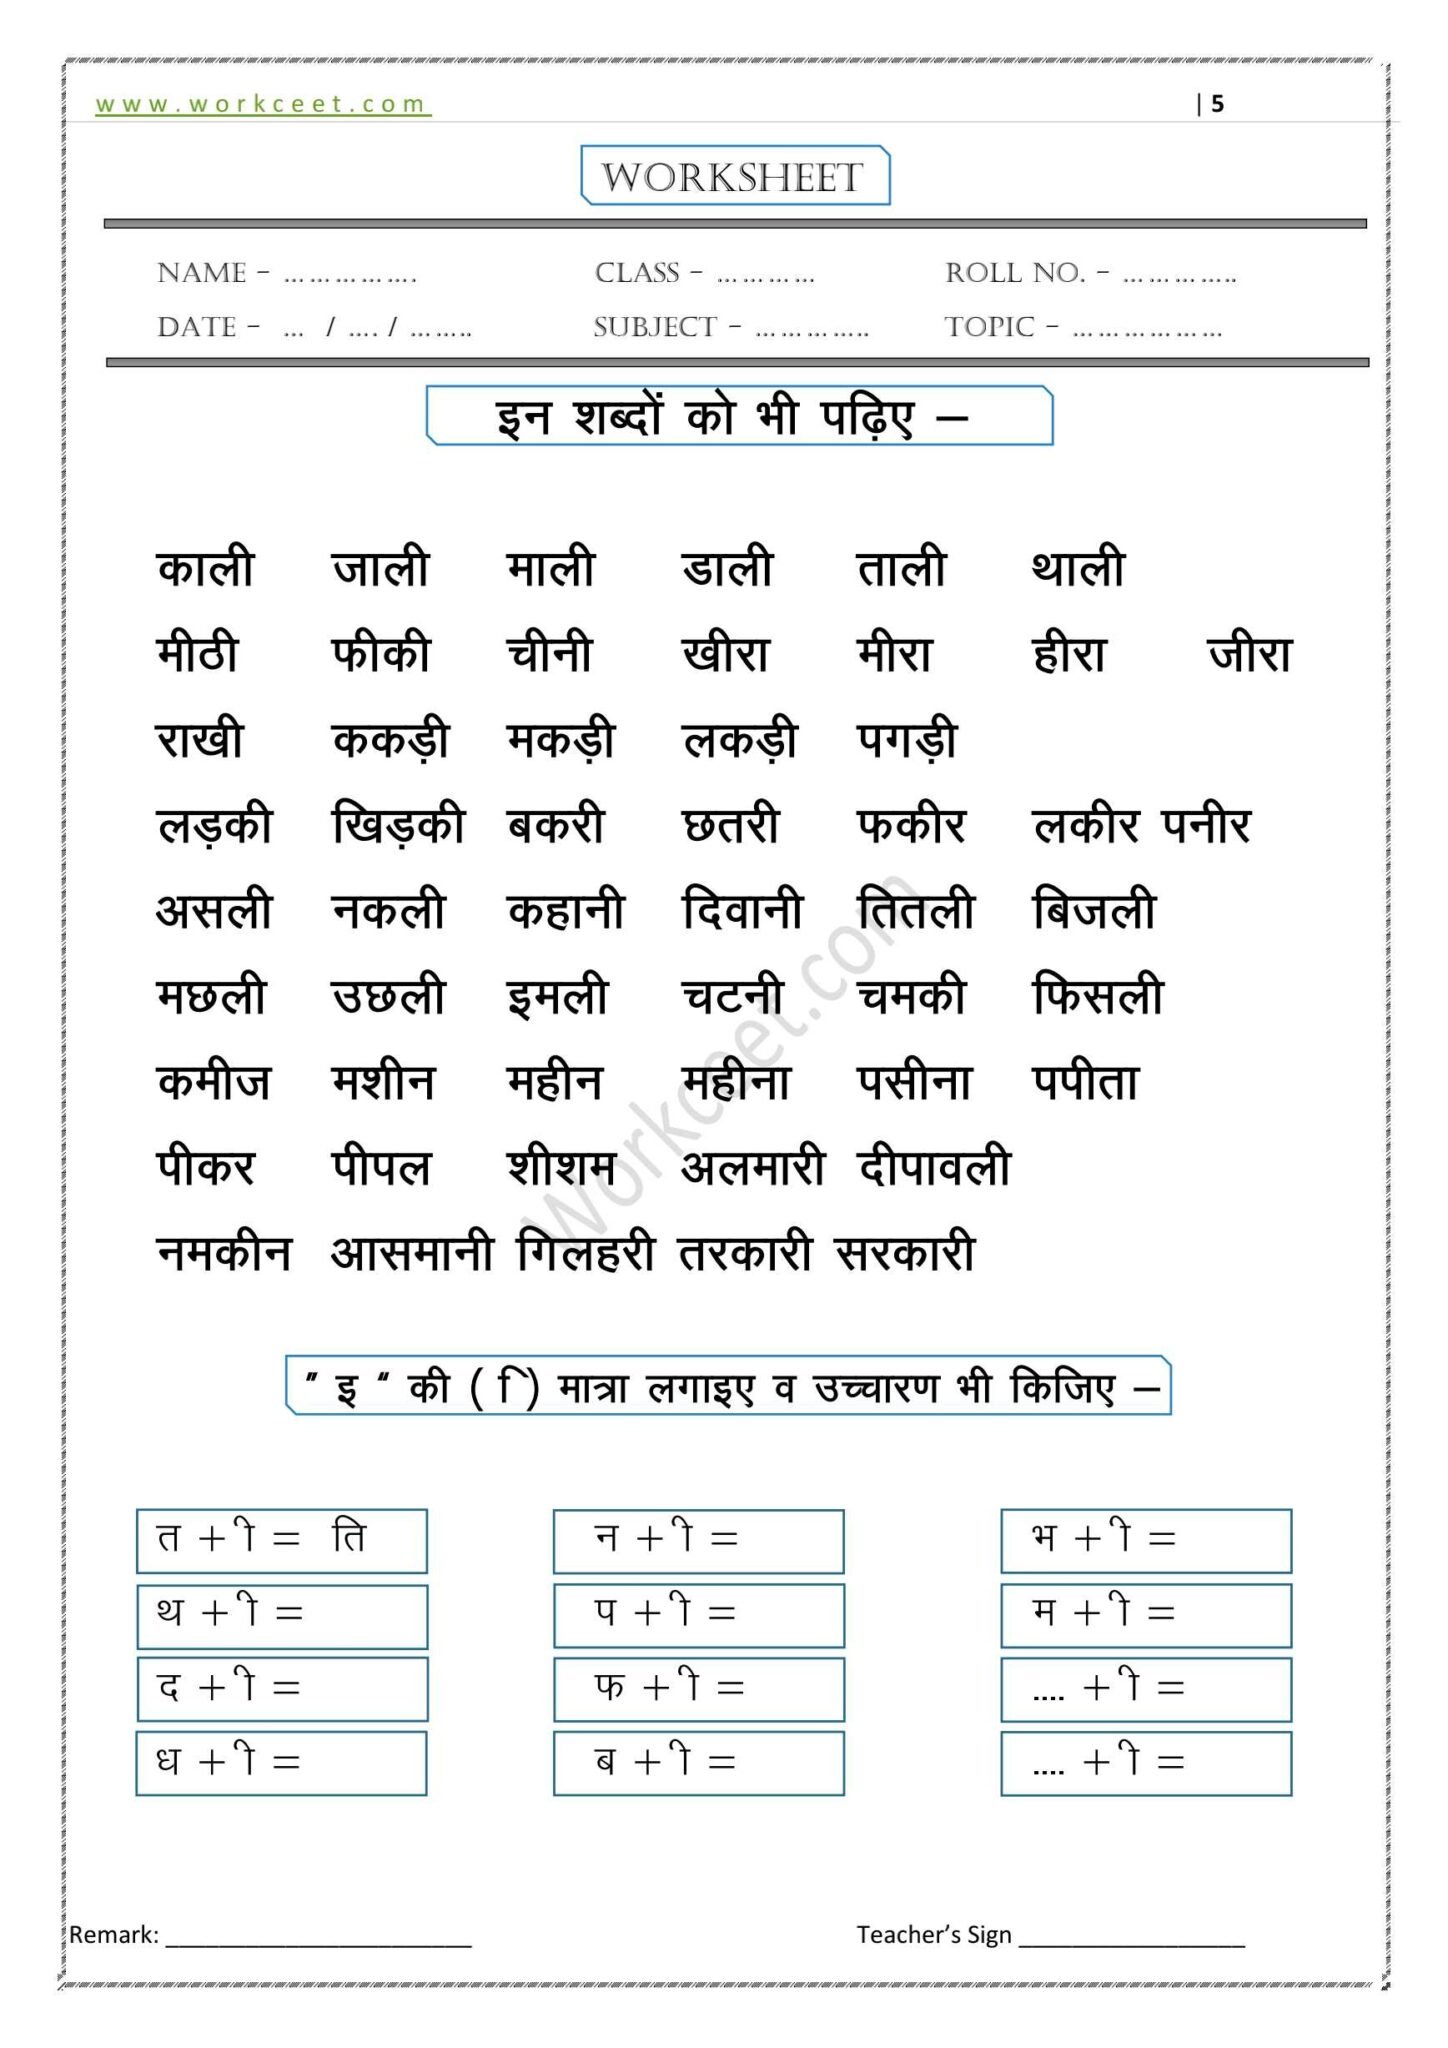 www.workceet.com | 5
WORKSHEET
NAME - ................ CLASS - ............ ROLL NO. - ..............
DATE - ... / .... / ........ SUBJECT - .............. TOPIC - ..................
इन शब्दों को भी पढ़िए –
काली जाली माली डाली ताली थाली
मीठी फीकी चीनी खीरा मीरा हीरा जीरा
राखी ककड़ी मकड़ी लकड़ी पगड़ी
लड़की खिड़की बकरी छतरी फकीर लकीर पनीर
असली नकली कहानी दिवानी तितली बिजली
मछली उछली इमली चटनी चमकी फिसली
कमीज मशीन महीन महीना पसीना पपीता
पीकर पीपल शीशम अलमारी दीपावली
नमकीन आसमानी गिलहरी तरकारी सरकारी
Workceet.com
” इ “ की ( ि ) मात्रा लगाइए व उच्चारण भी किजिए –
त + ी = ति न + ी = भ + ी =
थ + ी = प + ी = म + ी =
द + ी = फ + ी = .... + ी =
ध + ी = ब + ी = .... + ी =
Remark: ______________________ Teacher’s Sign ________________